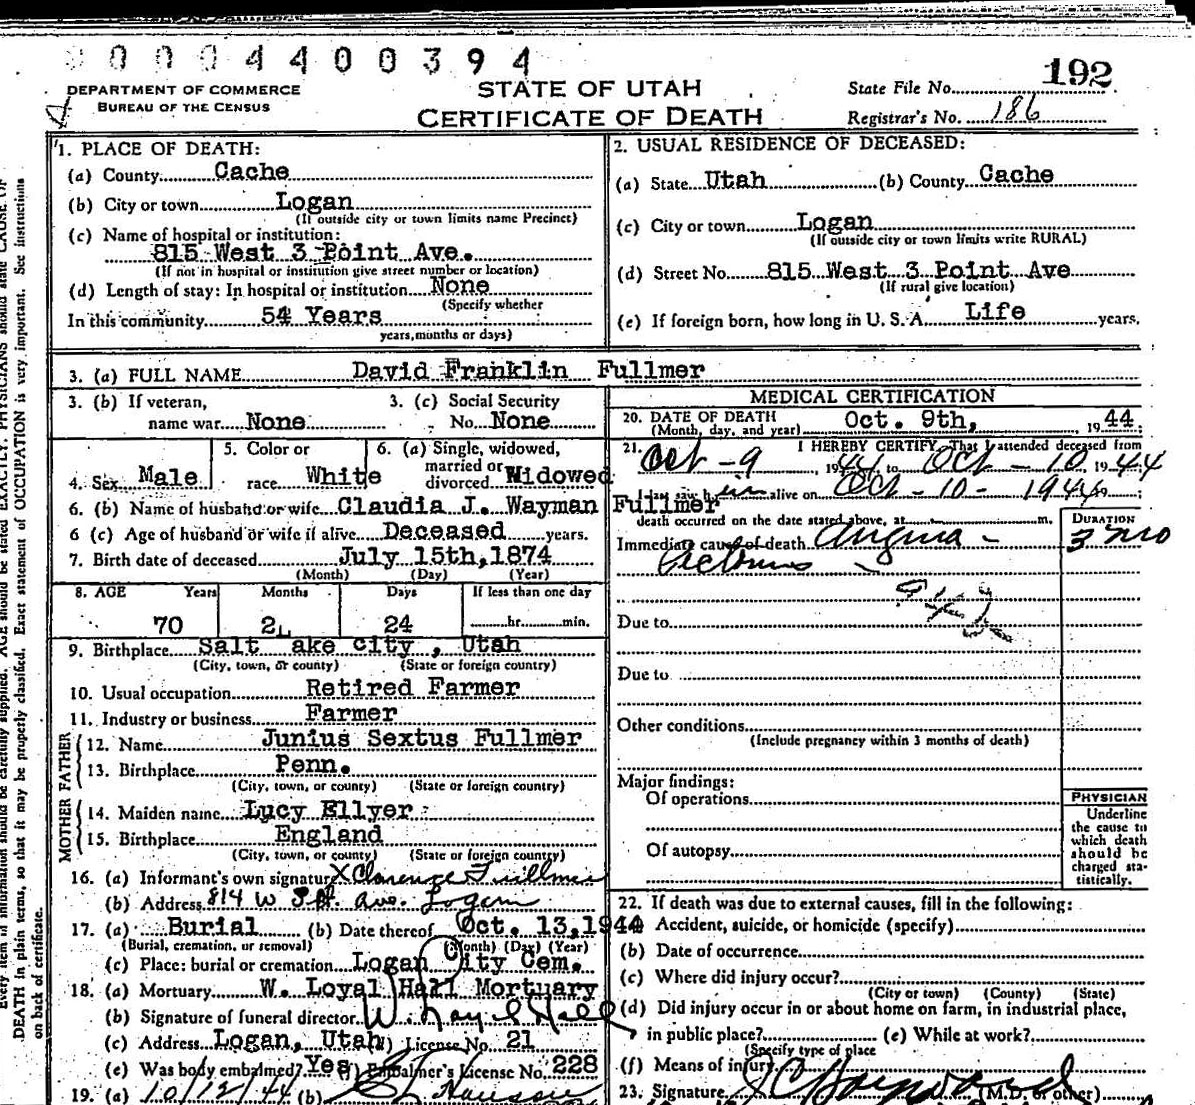 00004400394
DEPARTMENT OF COMMERCE
BUREAU OF THE CENSUS
STATE OF UTAH
CERTIFICATE OF DEATH
State File No. 192
Registrar's No. 186
1. PLACE OF DEATH:
(a) County Cache
(b) City or town Logan
(If outside city or town limits name Precinct)
(c) Name of hospital or institution:
815 West 3 Point Ave.
(If not in hospital or institution give street number or location)
(d) Length of stay: In hospital or institution None
(Specify whether
In this community 54 Years
years, months or days)
2. USUAL RESIDENCE OF DECEASED:
(a) State Utah (b) County Cache
(c) City or town Logan
(If outside city or town limits write RURAL)
(d) Street No. 815 West 3 Point Ave
(If rural give location)
(e) If foreign born, how long in U. S. A. Life years.
3. (a) FULL NAME David Franklin Fullmer
3. (b) If veteran,
name war None
3. (c) Social Security
No. None
4. Sex Male
5. Color or
race White
6. (a) Single, widowed,
married or
divorced Widowed
6. (b) Name of husband or wife Claudia J. Wayman Fullmer
6 (c) Age of husband or wife if alive Deceased years.
7. Birth date of deceased July 15th, 1874
(Month) (Day) (Year)
8. AGE Years Months Days If less than one day
70 2 24 hr. min.
9. Birthplace Salt Lake city, Utah
(City, town, or county) (State or foreign country)
10. Usual occupation Retired Farmer
11. Industry or business Farmer
FATHER
12. Name Junius Sextus Fullmer
13. Birthplace Penn.
(City, town, or county) (State or foreign country)
MOTHER
14. Maiden name Lucy Ellyer
15. Birthplace England
(City, town, or county) (State or foreign country)
16. (a) Informant's own signature X Clarence Fullmer
(b) Address 814 W 3 Pt. Ave. Logan
17. (a) Burial (b) Date thereof Oct. 13, 1944
(Burial, cremation, or removal) (Month) (Day) (Year)
(c) Place: burial or cremation Logan City Cem.
18. (a) Mortuary W. Loyal Hall Mortuary
(b) Signature of funeral director W. Loyal Hall
(c) Address Logan, Utah License No. 21
(e) Was body embalmed? Yes (f) Embalmer's License No. 228
19. (a) 10/12/44 (b)
MEDICAL CERTIFICATION
20. DATE OF DEATH Oct. 9th, 1944
(Month, day, and year)
21. I HEREBY CERTIFY, That I attended deceased from
Oct - 9, 1944 to Oct - 10, 1944
I last saw him alive on Oct - 10 - 1944;
death occurred on the date stated above, at m.
DURATION
Immediate cause of death Angina - 3 mo
Pectoris
94
Due to
Due to
Other conditions
(Include pregnancy within 3 months of death)
Major findings:
Of operations
Of autopsy
PHYSICIAN
Underline
the cause to
which death
should be
charged sta-
tistically.
22. If death was due to external causes, fill in the following:
(a) Accident, suicide, or homicide (specify)
(b) Date of occurrence
(c) Where did injury occur?
(City or town) (County) (State)
(d) Did injury occur in or about home on farm, in industrial place,
in public place? (e) While at work?
(Specify type of place
(f) Means of injury
23. Signature (M.D. or other)
Every item of information should be carefully supplied. AGE should be stated EXACTLY. PHYSICIANS should state CAUSE OF
DEATH in plain terms, so that it may be properly classified. Exact statement of OCCUPATION is very important. See instructions
on back of certificate.